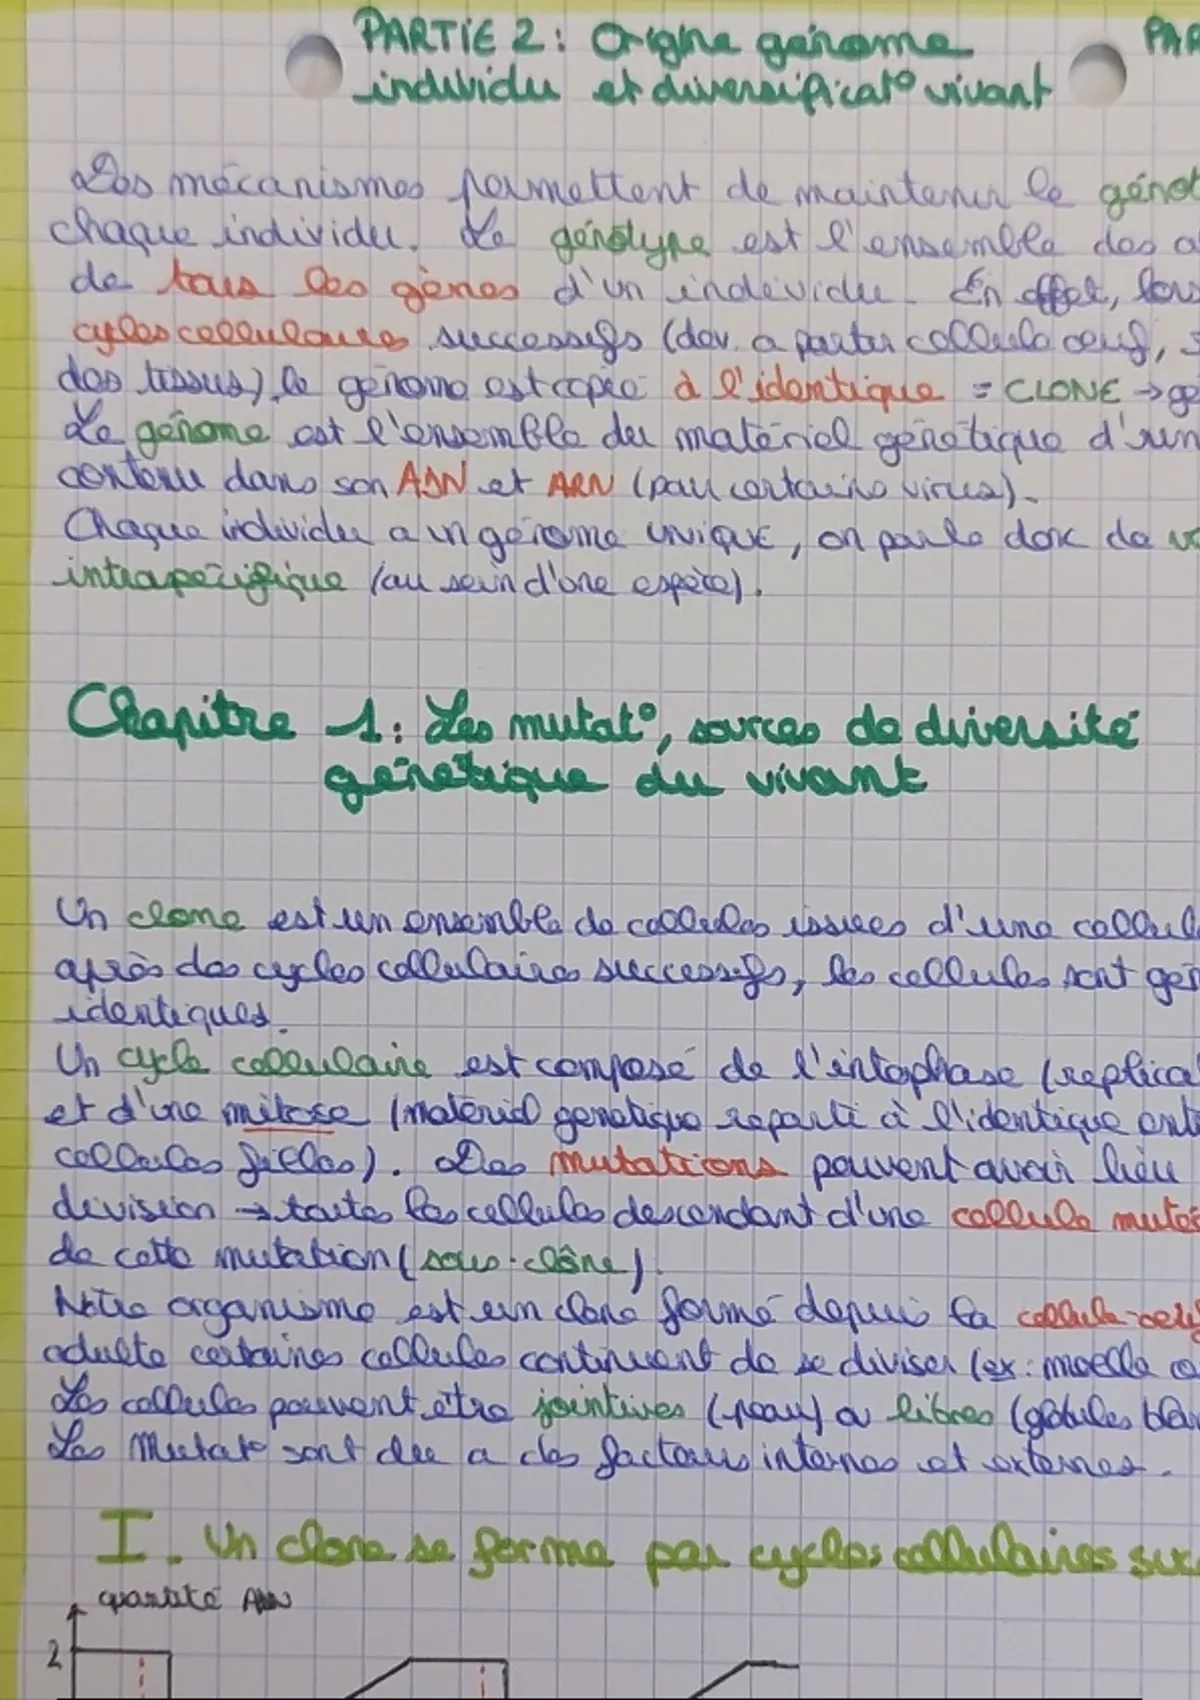 PARTIE 2 : Origine génome
individu et diversificat° vivant
PAR
Des mécanismes permettent de maintenir le génot
chaque individu. Le génotype est l'ensemble des a
de tous les gènes d'un individu. En effet, lors
cycles cellulaires successifs (dev. a partir cellule oeuf,
des tissus), le génome est copié à l'identique = CLONE → gé
Le génome est l'ensemble du matériel génétique d'un
contenu dans son ADN et ARN (pour certains virus).
Chaque individu a un génome UNIQUE, on parle donc de va
intraspécifique (au sein d'une espèce).
Chapitre 1 : Les mutat°, sources de diversité
génétique du vivant
Un clone est un ensemble de cellules issues d'une cellul
après des cycles cellulaires successifs, les cellules sont gén
identiques.
Un cycle cellulaire est composé de l'interphase (replicat
et d'une mitose (matériel génétique reparti à l'identique ent
cellules filles). Des mutations peuvent avoir lieu
division → toutes les cellules descendant d'une cellule mutée
de cette mutation (sous-clône).
Notre organisme est un clone formé depuis la cellule-oeu
adulte certaines cellules continuent de se diviser (ex : moelle o
Les cellules peuvent être jointives (peau) ou libres (globules blan
Les Mutat° sont due a des facteurs internes et externes.
I. Un clone se forme par cycles cellulaires suc
quantité ADN
2